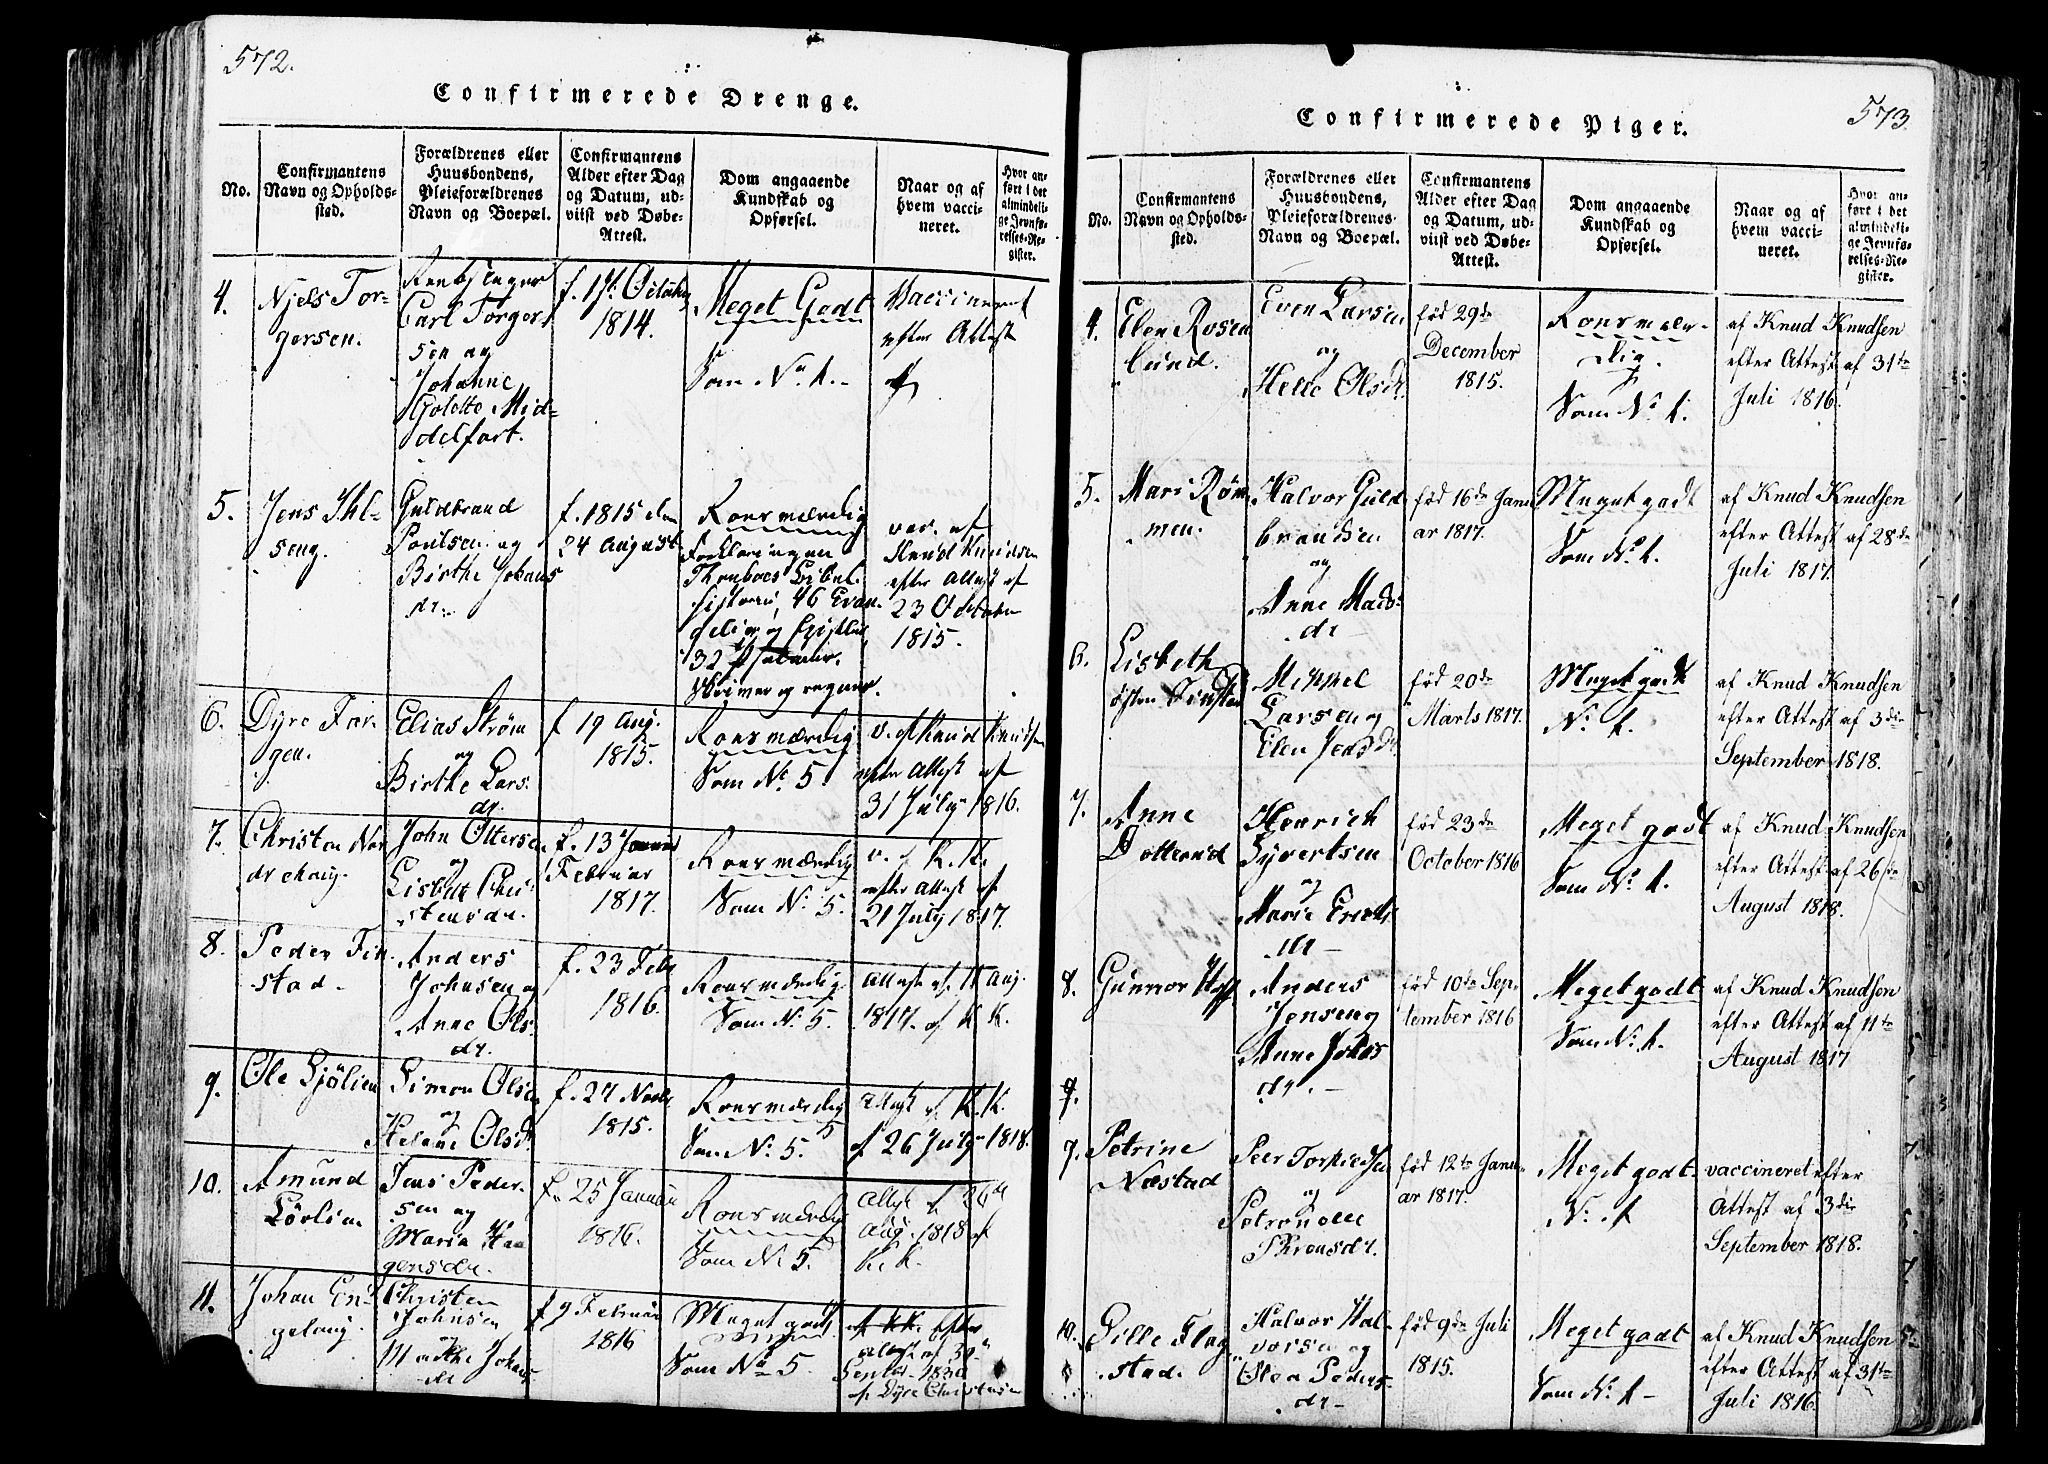 572.
Confirmerede Drenge.
No.
Confirmantens
Navn og Opholds-
sted.
Forældrenes eller
Huusbondens,
Pleieforældrenes
Navn og Boepæl.
Confirmantens
Alder efter Dag
og Datum, ud-
viist ved Døbe-
Attest.
Dom angaaende
Kundskab og
Opførsel.
Naar og af
hvem vacci-
neret.
Hvor an-
ført i det
almindeli-
ge Jevnfø-
relses-Re-
gister.
4.
Njels Tor-
gersen.
Carl Torger
sen og
Johanne
Golette Mid-
delfart.
f. 17. Octobr
1814.
Meget Godt
Som No 1.
Vaccineret
efter Attest
af
5.
Jens Ihl-
seng.
Guldbrand
Poulsen og
Birthe Johans
dr.
f. 1815 den
24 August
Roesværdig
46 Evan-
gelier og Epistler
32 Psalmer.
Skriver og regner.
vac. af
Knud Knudsen
efter Attest af
23 October
1815.
6.
Dyre Far-
gen.
Elias Strøm
og
Birthe Lars
dr.
f 19 Aug.
1815.
Roesværdig
Som No 5
v. af Knud Knudsen
efter Attest af
31 July 1816.
7.
Christen Nor
drehaug.
John Ottersen
og
Lisbet Chri
stensdr.
f. 13 Januar
Februar
1817.
Roesværdig
Som No 5.
v. af K. K.
efter Attest af
21 July 1817.
8.
Peder Fin
stad.
Anders
Johnsen og
Anne Ols
dr.
f. 23 Febr
1816.
Roesværdig
Som No 5.
Attest af 11 Aug.
1817. af K K.
9.
Ole Sjølien
Simon Olsen
og
Helene Olsdr
f. 27 Novbr
1815.
Roesværdig
Som No 5.
Attest af K. K.
af 26 July 1818.
10.
Amund
Lørlien
Jens Peder-
sen og
Maria Haa
gensdr.
f. 25 Januar
1816.
Roesværdig
Som No 5.
Attest af 26de
Aug. 1818 af
K. K.
11.
Johan En-
gelaug.
Christen
Johnsen
og
Marthe Johans
dr
f 9. Februar
1816
Meget godt
Som No 5
af KK. efter
Attest af 30
Septbr. 1830
af Dyre Christensen
573.
Confirmerede Piger.
No.
Confirmantens
Navn og Opholds-
sted.
Forældrenes eller
Huusbondens,
Pleieforældrenes
Navn og Boepæl.
Confirmantens
Alder efter Dag
og Datum, ud-
viist ved Døbe-
Attest.
Dom angaaende
Kundskab og
Opførsel.
Naar og af
hvem vacci-
neret.
Hvor an-
ført i det
almindeli-
ge Jevnfø-
relses-Re-
gister.
4.
Elen Rosen
lund.
Even Larsen
og
Helle Olsdr.
fød 29de
December
1815.
Roesvær-
dig.
Som No 1.
af Knud Knudsen
efter Attest af 31te
Juli 1816.
5.
Mari Røm
men.
Halvor Guld
brandsen
og
Anne Mads
dr
fød 16de Janu
ar 1817.
Meget godt
Som No 1.
af Knud Knudsen
efter Attest af 28de
Juli 1817.
6.
Lisbeth
østen Finstad
Mikkel
Larsen og
Elen Jensdr
fød 20de
Marts 1817.
Meget godt
No 1.
af Knud Knudsen
efter Attest af 3die
September 1818.
7.
Anne
Dotterud
Henrich
Syvertsen
og
Marie Erichs
dr
fød 23de
October 1816
Meget godt
Som No 1.
af Knud Knudsen
efter Attest af 26de
August 1818.
8.
Gunnor
Anders
Jensen og
Anne Johns
dr.
fød 10de Sep-
tember 1816
Meget godt
Som No 1.
af Knud Knudsen
efter Attest af 11te
August 1817
9.
9.
Petrine
Næstad
Peer Torkildsen
og
Petronelle
Thrensdr.
fød 12te Janu
ar 1817.
Meget godt
No 1
vaccineret efter
Attest af 3die
September 1818.
10.
Pille Flag
stad.
Halvor Hal-
vorsen og
Olea Peders
dr
fød 9de Juli
1815.
Meget godt
Som No 1
af Knud Knudsen
efter Attest af 31te
Juli 1816.